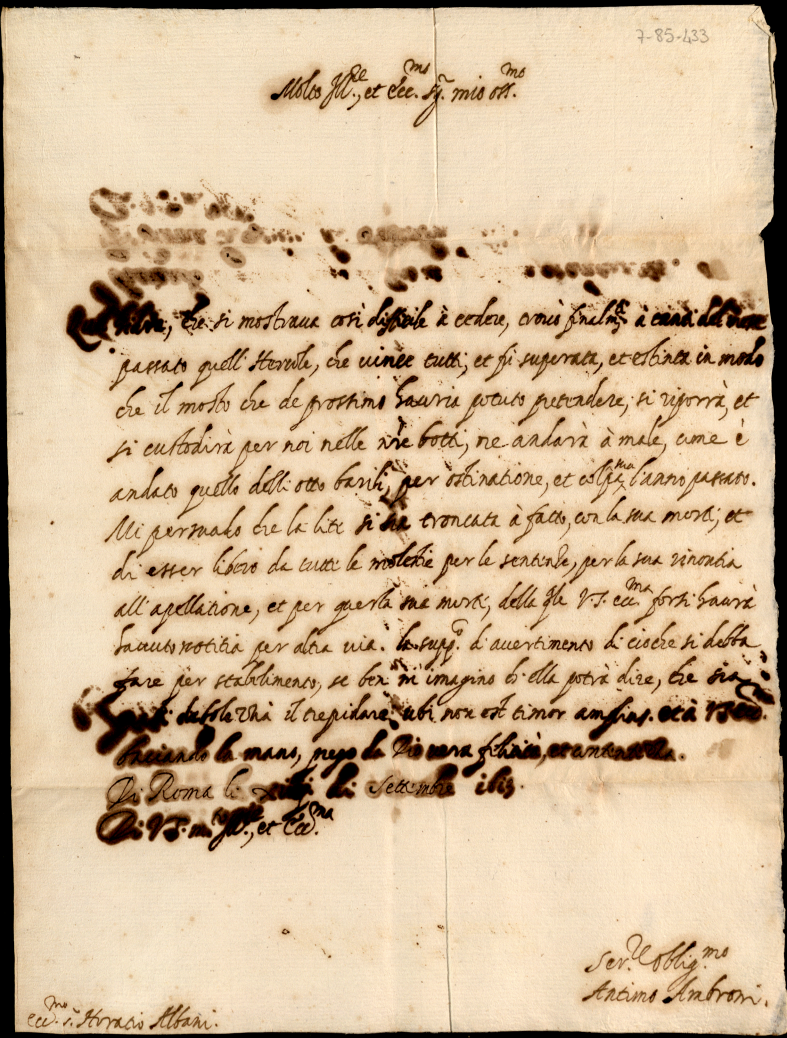 7-85-433
Molto Ill.re, et Ecc.mo Sr. mio oss.mo
che si mostraua così difficile à cedere, trouò finalm.te à del mese
passato quell'Hercole, che uince tutti, et fù superata, et estinta in modo
che il mosto che de prossimo hauria potuto pretendere, si riporrà, et
si custodirà per noi nelle nre botti, ne andarà à male, come è
andato quello delli otto barili, per ostinatione, et colpa sua l'anno passato.
Mi persuado che la lite sia troncata à fatto, con la sua morte, et
di esser libero da tutte le molestie per le sentenze, per la sua rinontia
all'apellatione, et per questa sua morte, della qle V.S. ecc.ma forsi haurà
hauuto notitia per altra uia. la supp.co d'auertimento di ciò che si debba
fare per stabilimento, se ben m'imagino ch'ella potrà dire, che sia
debolezza il trepidare, ubi non est timor amplius. et à V.S. Ecc.ma
baciando la mano, prego da Dio uera felicità, et contentezza.
Di Roma li di Settembre 1613.
Di V.S. m.to Ill.re, et Ecc.ma
Ser.re oblig.mo
Antimo Ambroni.
Ecc.mo Sr. Horatio Albani.